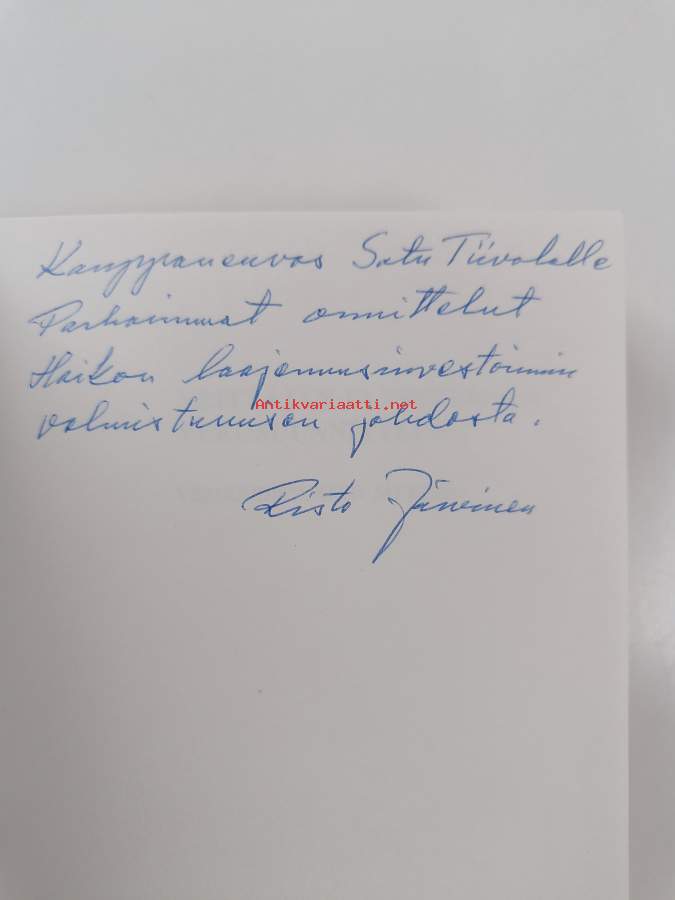 Kauppaneuvos Satu Tiivolalle
Parhaimmat onnittelut
Haikon laajennusinvestoinnin
Antikvariaatti.net
valmistumisen johdosta.
Risto Järvinen